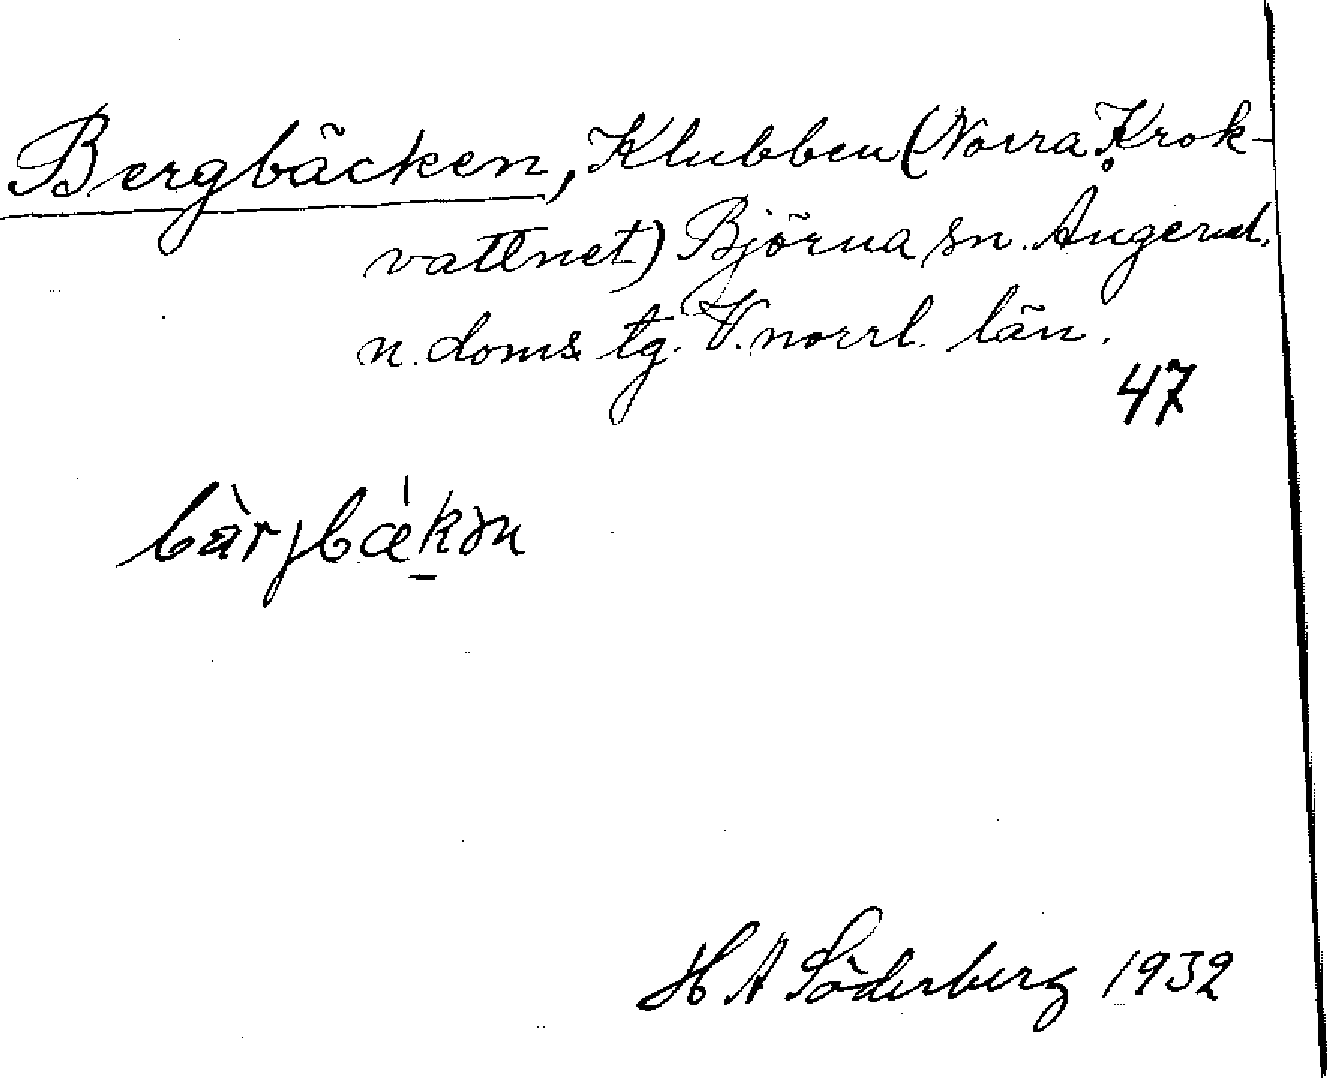 Bergbäcken, Klubben (Norra Krok-
vattnet) Björna sn. Ångerml.
n. doms. tg. V.norrl. län.
47
bàrjbækən
H A Söderberg 1932